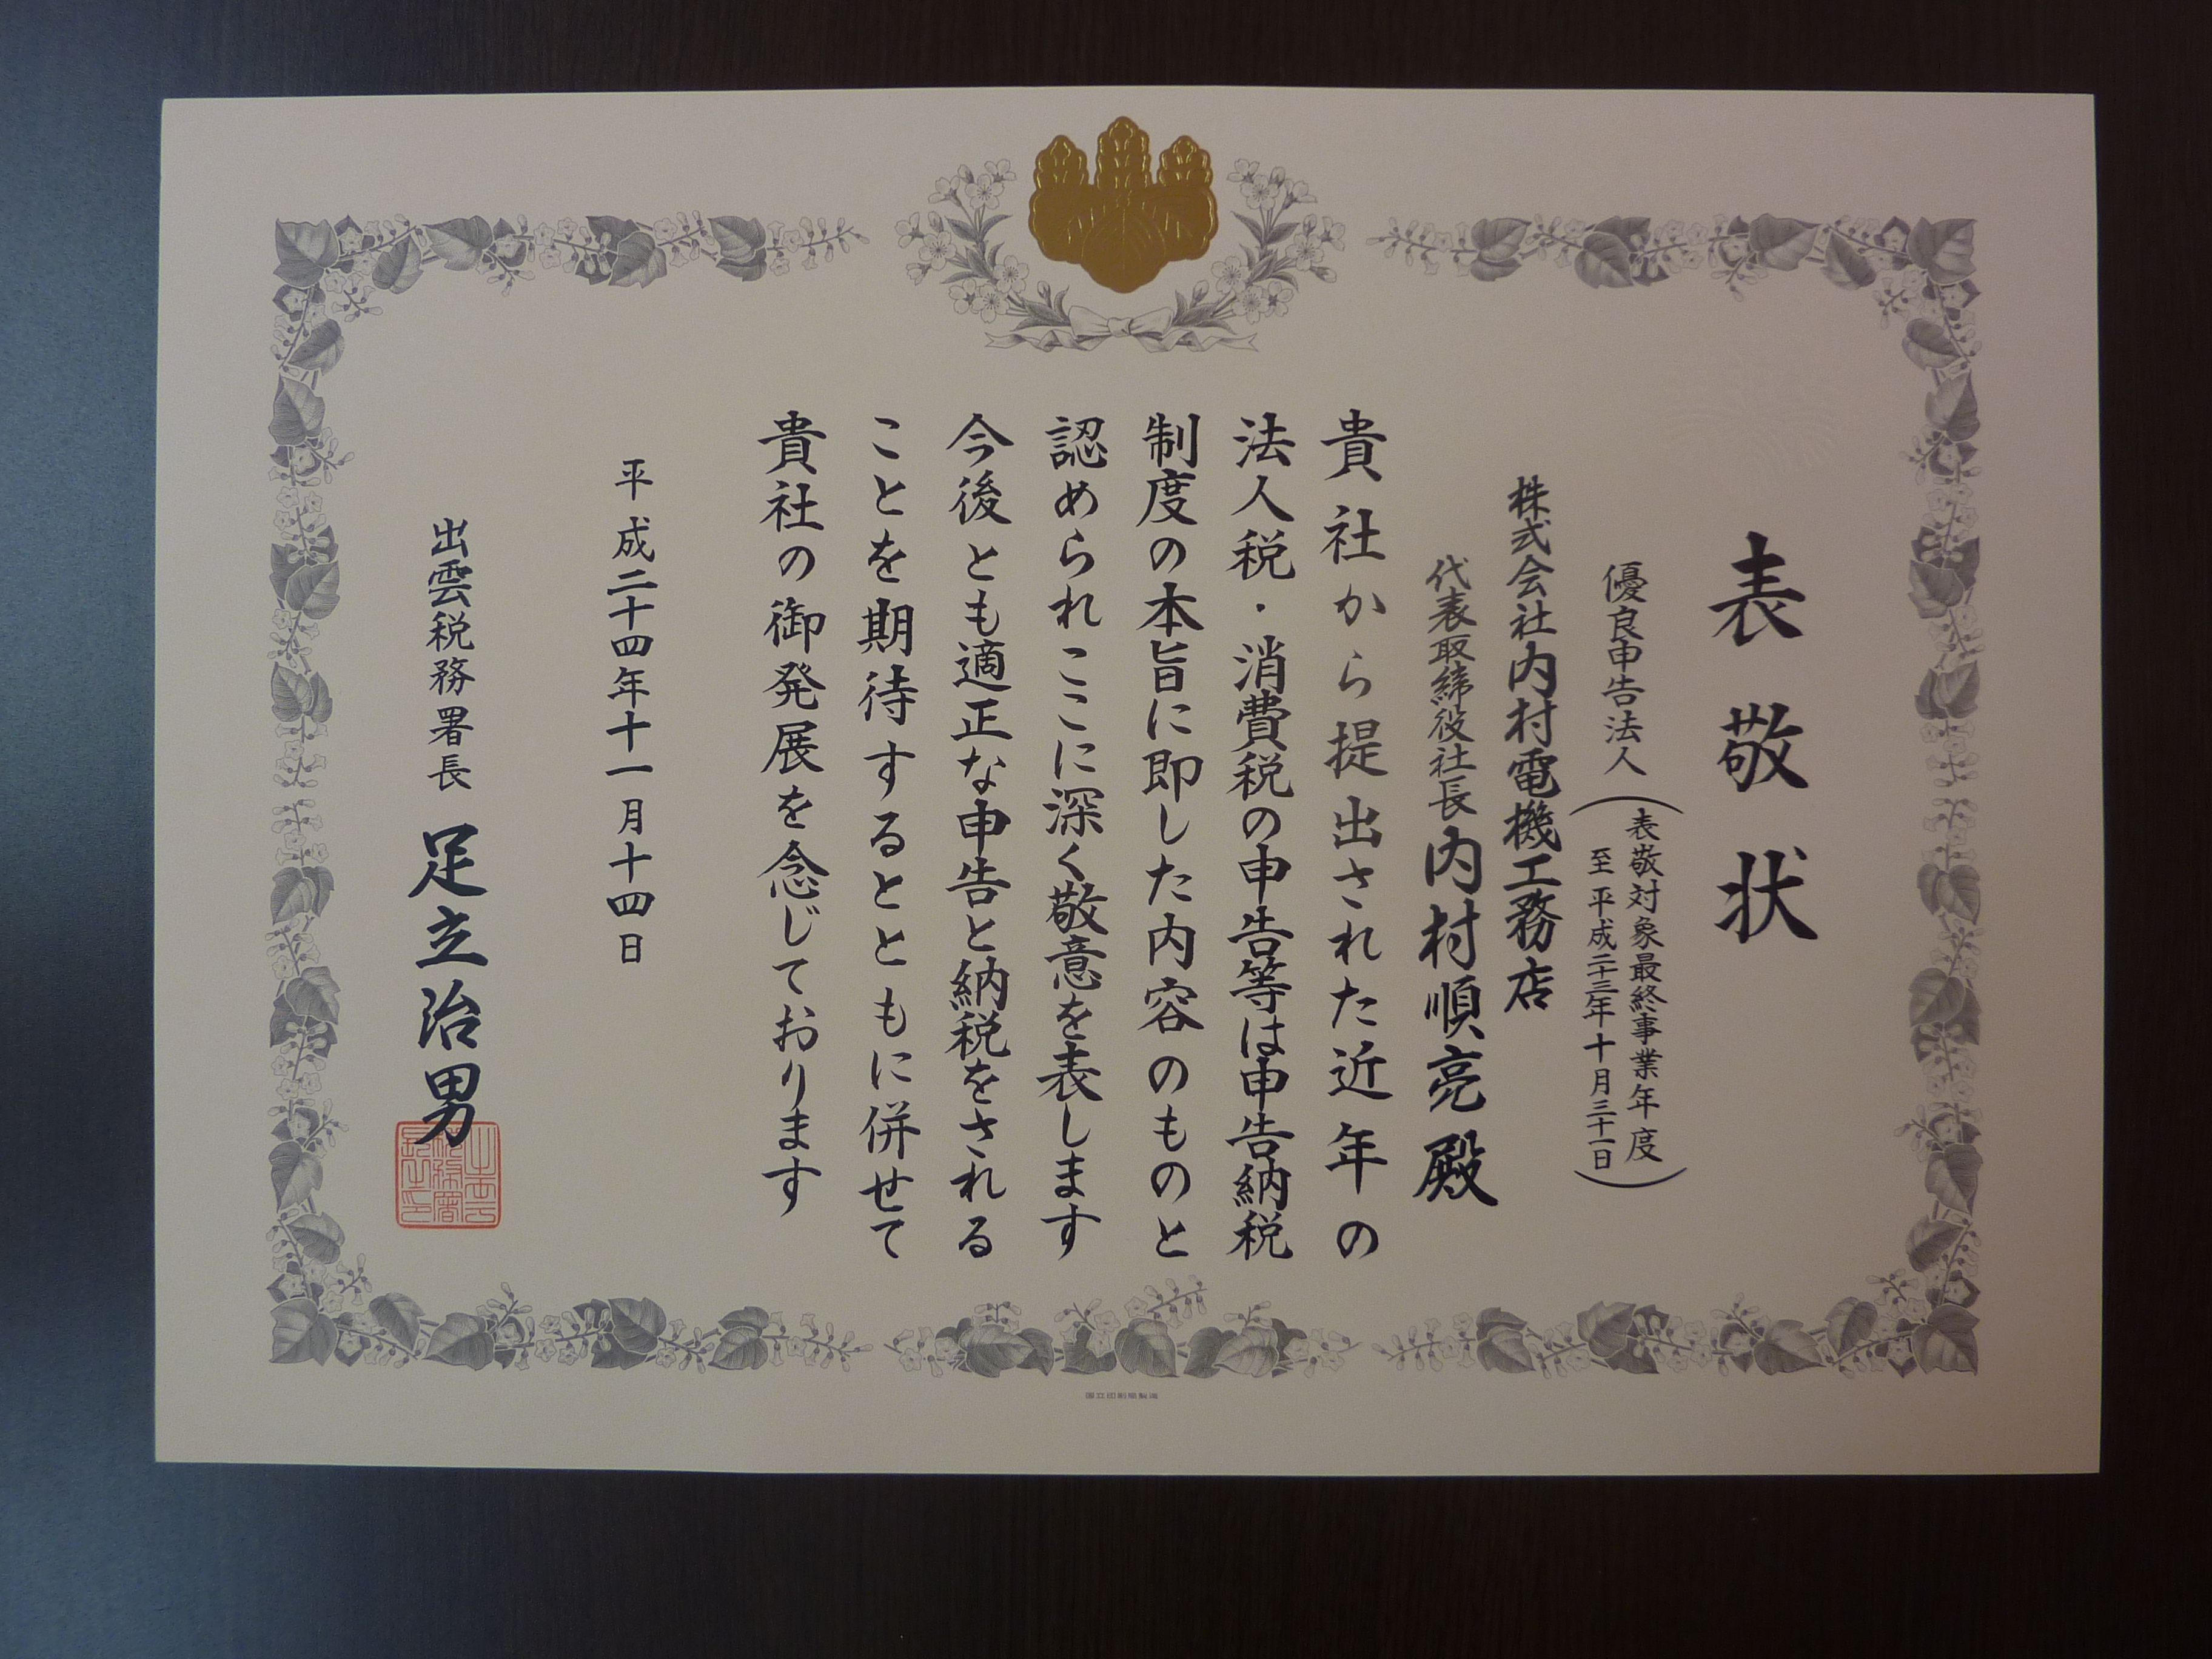 表敬状
優良申告法人
(表敬対象最終事業年度
至 平成二十三年十月三十一日)
株式会社内村電機工務店
代表取締役社長内村順亮殿
貴社から提出された近年の
法人税・消費税の申告等は申告納税
制度の本旨に即した内容のものと
認められここに深く敬意を表します
今後とも適正な申告と納税をされる
ことを期待するとともに併せて
貴社の御発展を念じております
平成二十四年十一月十四日
出雲税務署長 足立治男
国立印刷局製造